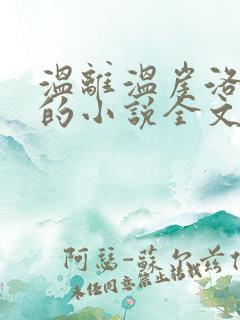 温離温崖洛
的小說全文
阿瑟-蘇尔兹
未经同意禁止转载